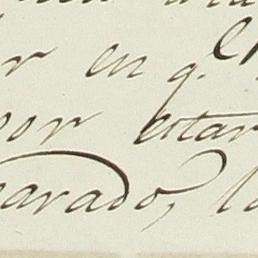 r en q.
por estar
parado, l